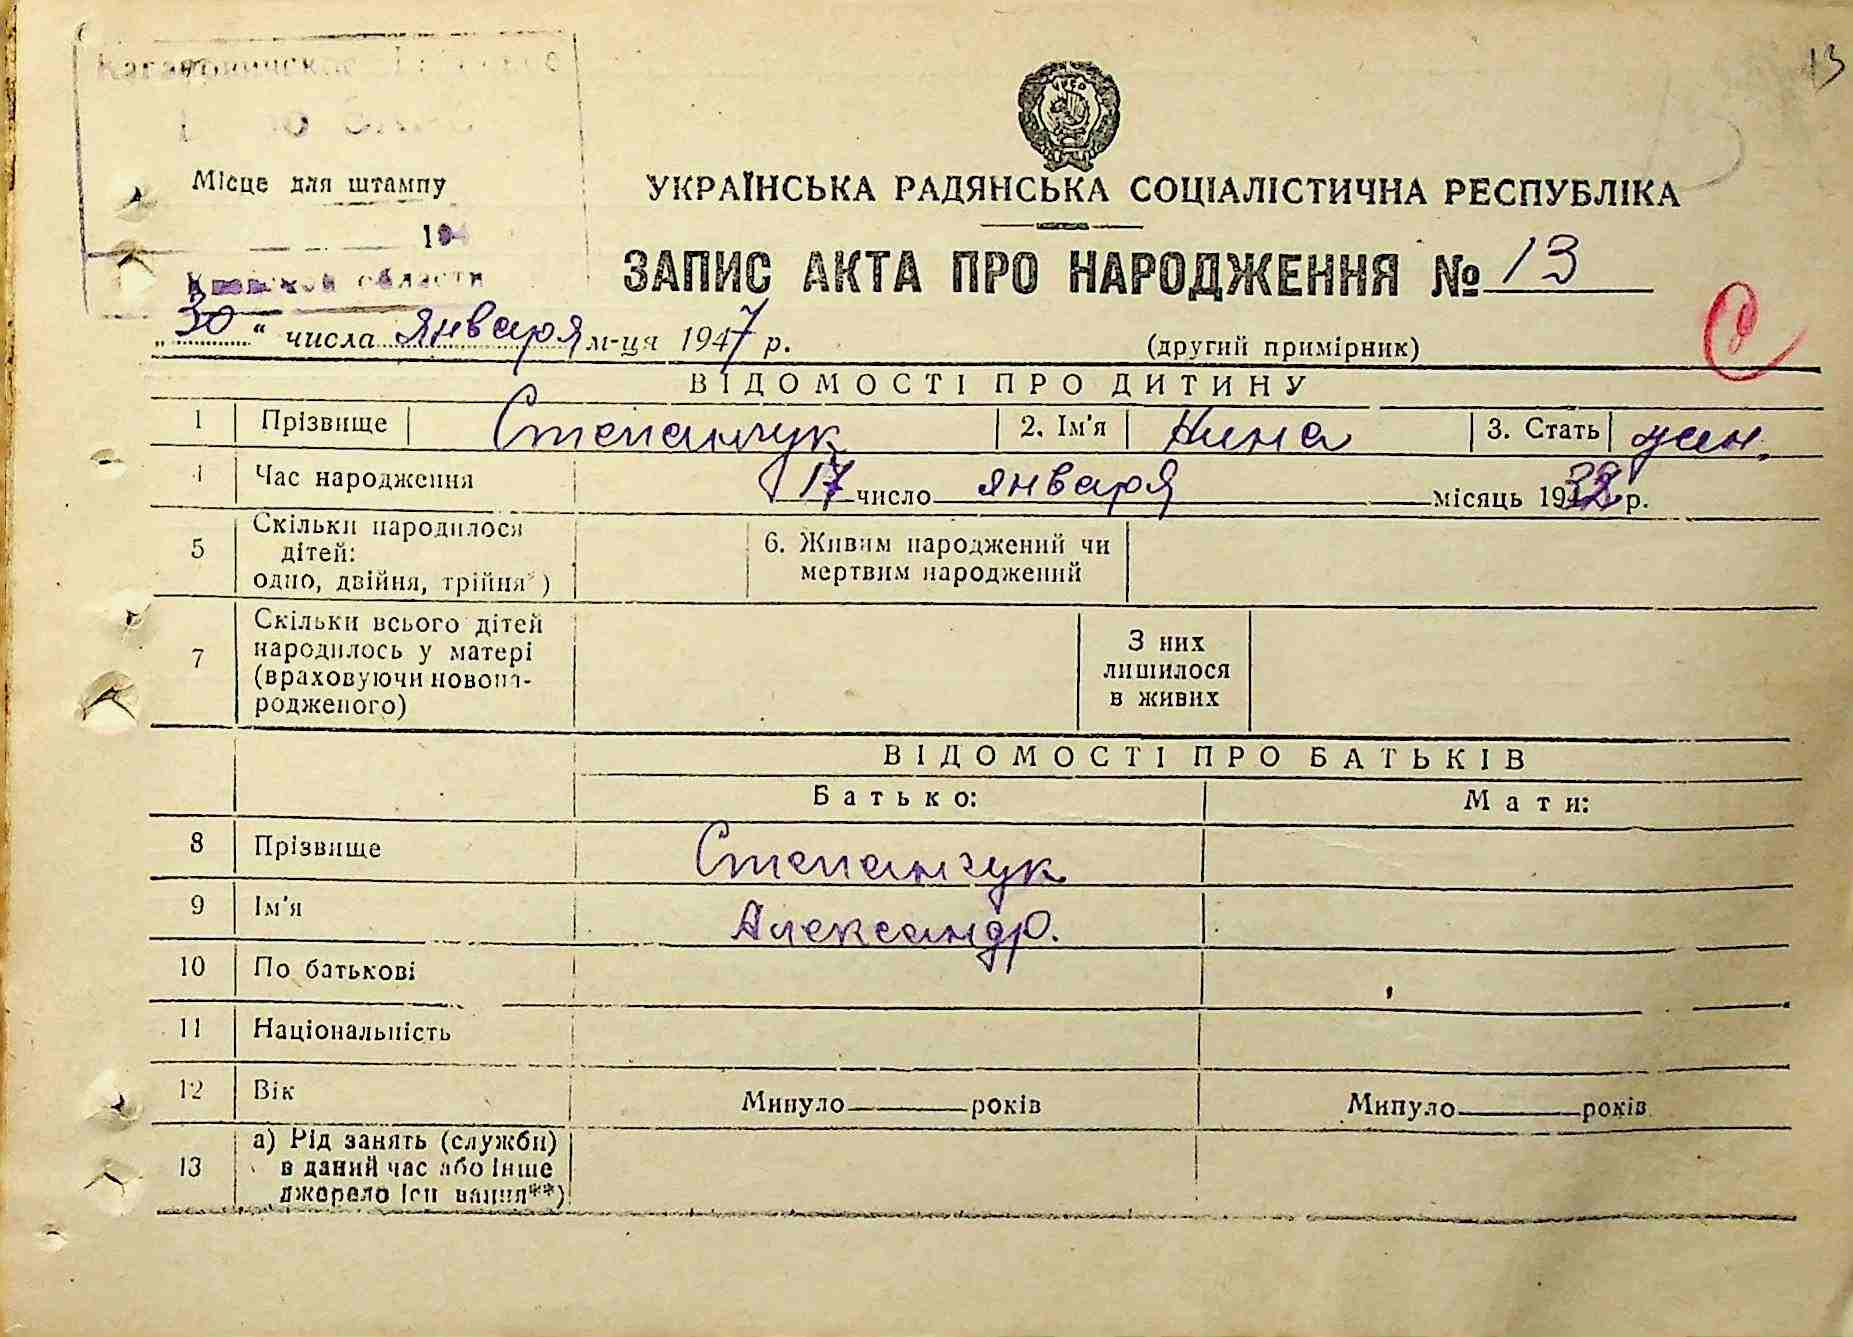 13
Місце для штампу
194
Киевской области
УКРАЇНСЬКА РАДЯНСЬКА СОЦІАЛІСТИЧНА РЕСПУБЛІКА
ЗАПИС АКТА ПРО НАРОДЖЕННЯ № 13
„30“ числа января м-ця 1947 р.
(другий примірник)
ВІДОМОСТІ ПРО ДИТИНУ
1 Прізвище Степанчук 2. Ім'я Нина 3. Стать жен.
4 Час народження 17 число января місяць 1932 р.
5 Скільки народилося
дітей:
одно, двійня, трійня*)
6. Живим народжений чи
мертвим народжений
7 Скільки всього дітей
народилось у матері
(враховуючи новона-
родженого)
З них
лишилося
в живих
ВІДОМОСТІ ПРО БАТЬКІВ
Батько: Мати:
8 Прізвище Степанчук
9 Ім'я Александр.
10 По батькові
11 Національність
12 Вік Минуло років Минуло років
13 а) Рід занять (служби)
в даний час або інше
джерело існування**)